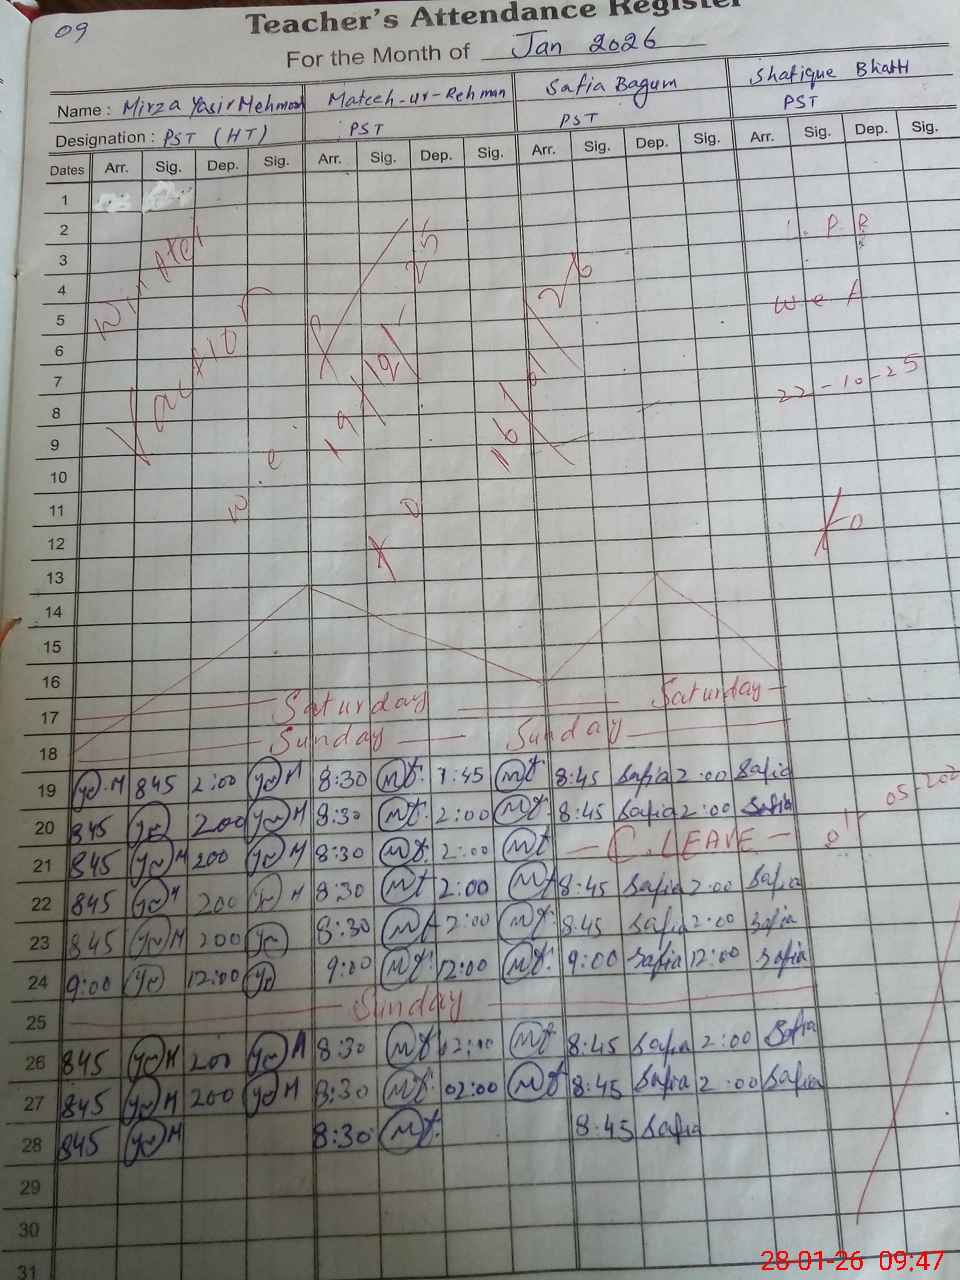 09
Teacher's Attendance Register
For the Month of Jan 2026
Name : Mirza Yasir Mehmood Mateeh-ur-Rehman Safia Bagum Shafique Bhatti
Designation : PST (HT) PST PST PST
Dates Arr. Sig. Dep. Sig. Arr. Sig. Dep. Sig. Arr. Sig. Dep. Sig. Arr. Sig. Dep. Sig.
1
2
3
4
5
6
7
8
9
10
11
12
13
14
15
16
Winter
Vacation
w.e
19/12/25
16/01/26
L.P.R
w e f
22-10-25
To
17 Saturday Saturday
18 Sunday Sunday
19 845 2:00 8:30 1:45 8:45 Safia 2:00 Safia
20 845 200 8:30 2:00 8:45 Safia 2:00 Safia
21 845 200 8:30 2:00 C. LEAVE
22 845 200 8:30 2:00 8:45 Safia 2:00 Safia
23 845 200 8:30 2:00 8:45 Safia 2:00 Safia
24 9:00 12:00 9:00 12:00 9:00 Safia 12:00 Safia
25 Sunday
26 845 200 8:30 8:45 Safia 2:00 Safia
27 845 200 8:30 02:00 8:45 Safia 2:00 Safia
28 845 8:30 8:45 Safia
29
30
31
28-01-26 09:47